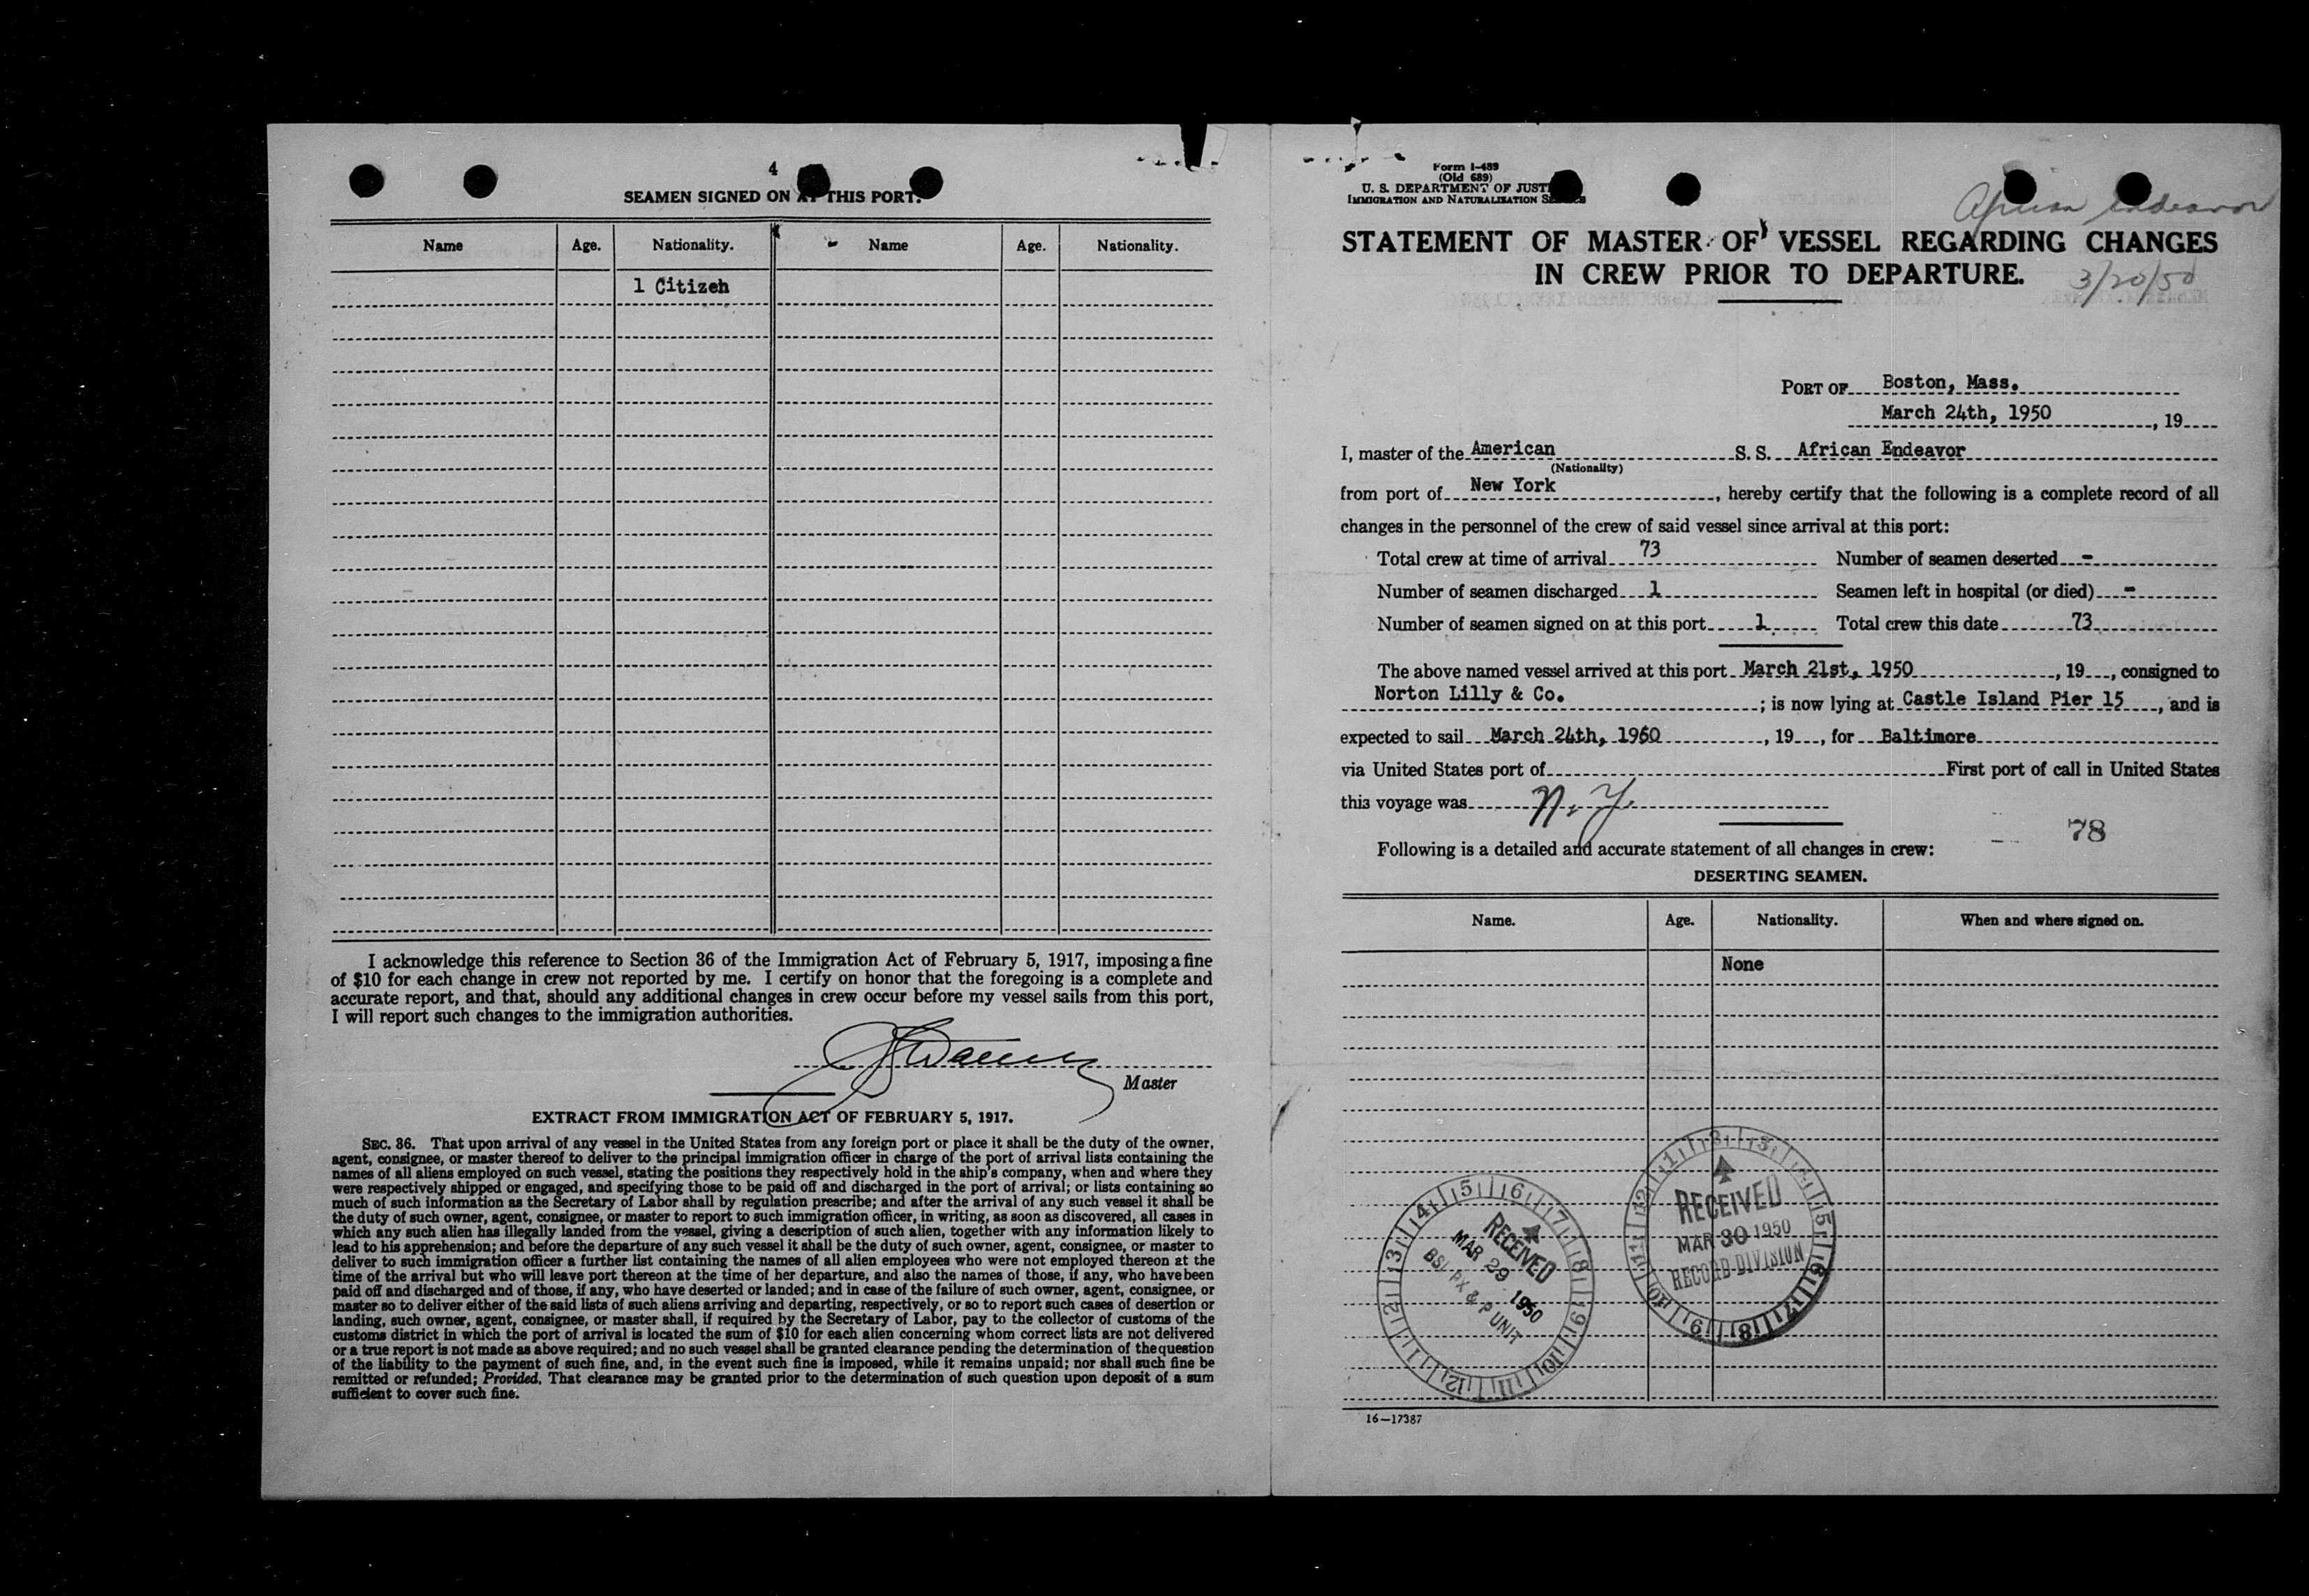 4
SEAMEN SIGNED ON AT THIS PORT.
Name Age. Nationality. Name Age. Nationality.
1 Citizen
I acknowledge this reference to Section 36 of the Immigration Act of February 5, 1917, imposing a fine
of $10 for each change in crew not reported by me. I certify on honor that the foregoing is a complete and
accurate report, and that, should any additional changes in crew occur before my vessel sails from this port,
I will report such changes to the immigration authorities.
Master
EXTRACT FROM IMMIGRATION ACT OF FEBRUARY 5, 1917.
SEC. 36. That upon arrival of any vessel in the United States from any foreign port or place it shall be the duty of the owner,
agent, consignee, or master thereof to deliver to the principal immigration officer in charge of the port of arrival lists containing the
names of all aliens employed on such vessel, stating the positions they respectively hold in the ship's company, when and where they
were respectively shipped or engaged, and specifying those to be paid off and discharged in the port of arrival; or lists containing so
much of such information as the Secretary of Labor shall by regulation prescribe; and after the arrival of any such vessel it shall be
the duty of such owner, agent, consignee, or master to report to such immigration officer, in writing, as soon as discovered, all cases in
which any such alien has illegally landed from the vessel, giving a description of such alien, together with any information likely to
lead to his apprehension; and before the departure of any such vessel it shall be the duty of such owner, agent, consignee, or master to
deliver to such immigration officer a further list containing the names of all alien employees who were not employed thereon at the
time of the arrival but who will leave port thereon at the time of her departure, and also the names of those, if any, who have been
paid off and discharged and of those, if any, who have deserted or landed; and in case of the failure of such owner, agent, consignee, or
master so to deliver either of the said lists of such aliens arriving and departing, respectively, or so to report such cases of desertion or
landing, such owner, agent, consignee, or master shall, if required by the Secretary of Labor, pay to the collector of customs of the
customs district in which the port of arrival is located the sum of $10 for each alien concerning whom correct lists are not delivered
or a true report is not made as above required; and no such vessel shall be granted clearance pending the determination of the question
of the liability to the payment of such fine, and, in the event such fine is imposed, while it remains unpaid; nor shall such fine be
remitted or refunded; Provided, That clearance may be granted prior to the determination of such question upon deposit of a sum
sufficient to cover such fine.
Form I-489
(Old 689)
U. S. DEPARTMENT OF JUST
IMMIGRATION AND NATURALIZATION SERVICE
African Endeavor
STATEMENT OF MASTER OF VESSEL REGARDING CHANGES
IN CREW PRIOR TO DEPARTURE.
3/20/50
PORT OF Boston, Mass.
March 24th, 1950, 19
I, master of the American S. S. African Endeavor
(Nationality)
from port of New York, hereby certify that the following is a complete record of all
changes in the personnel of the crew of said vessel since arrival at this port:
Total crew at time of arrival 73 Number of seamen deserted -
Number of seamen discharged 1 Seamen left in hospital (or died) -
Number of seamen signed on at this port 1 Total crew this date 73
The above named vessel arrived at this port March 21st, 1950, 19, consigned to
Norton Lilly & Co.; is now lying at Castle Island Pier 15, and is
expected to sail March 24th, 1960, 19, for Baltimore
via United States port of First port of call in United States
this voyage was N. Y.
78
Following is a detailed and accurate statement of all changes in crew:
DESERTING SEAMEN.
Name. Age. Nationality. When and where signed on.
None
RECEIVED
MAR 29 1950
BSI PX & P UNIT
RECEIVED
MAR 30 1950
RECORD DIVISION
16-17387